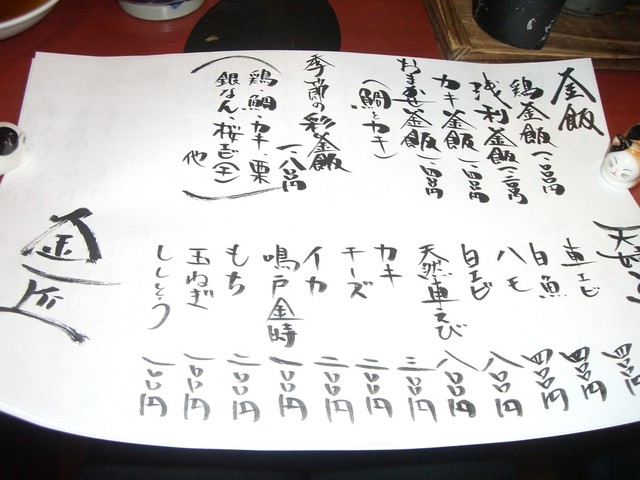 釜飯
鶏釜飯 一、〇〇〇円
浅利釜飯 一、二〇〇円
カキ釜飯 一、四〇〇円
おまぜ釜飯 一、四〇〇円
(鯛とカキ)
季節の彩釜飯 一、八〇〇円
(鶏・鯛・カキ・栗
銀なん・桜えび 他)
車エビ 四〇〇円
白魚 四〇〇円
ハモ 四〇〇円
白エビ 八〇〇円
天然車えび 八〇〇円
カキ 三〇〇円
チーズ 二〇〇円
イカ 二〇〇円
鳴戸金時 一〇〇円
もち 二〇〇円
玉ねぎ 一〇〇円
ししとう 一〇〇円